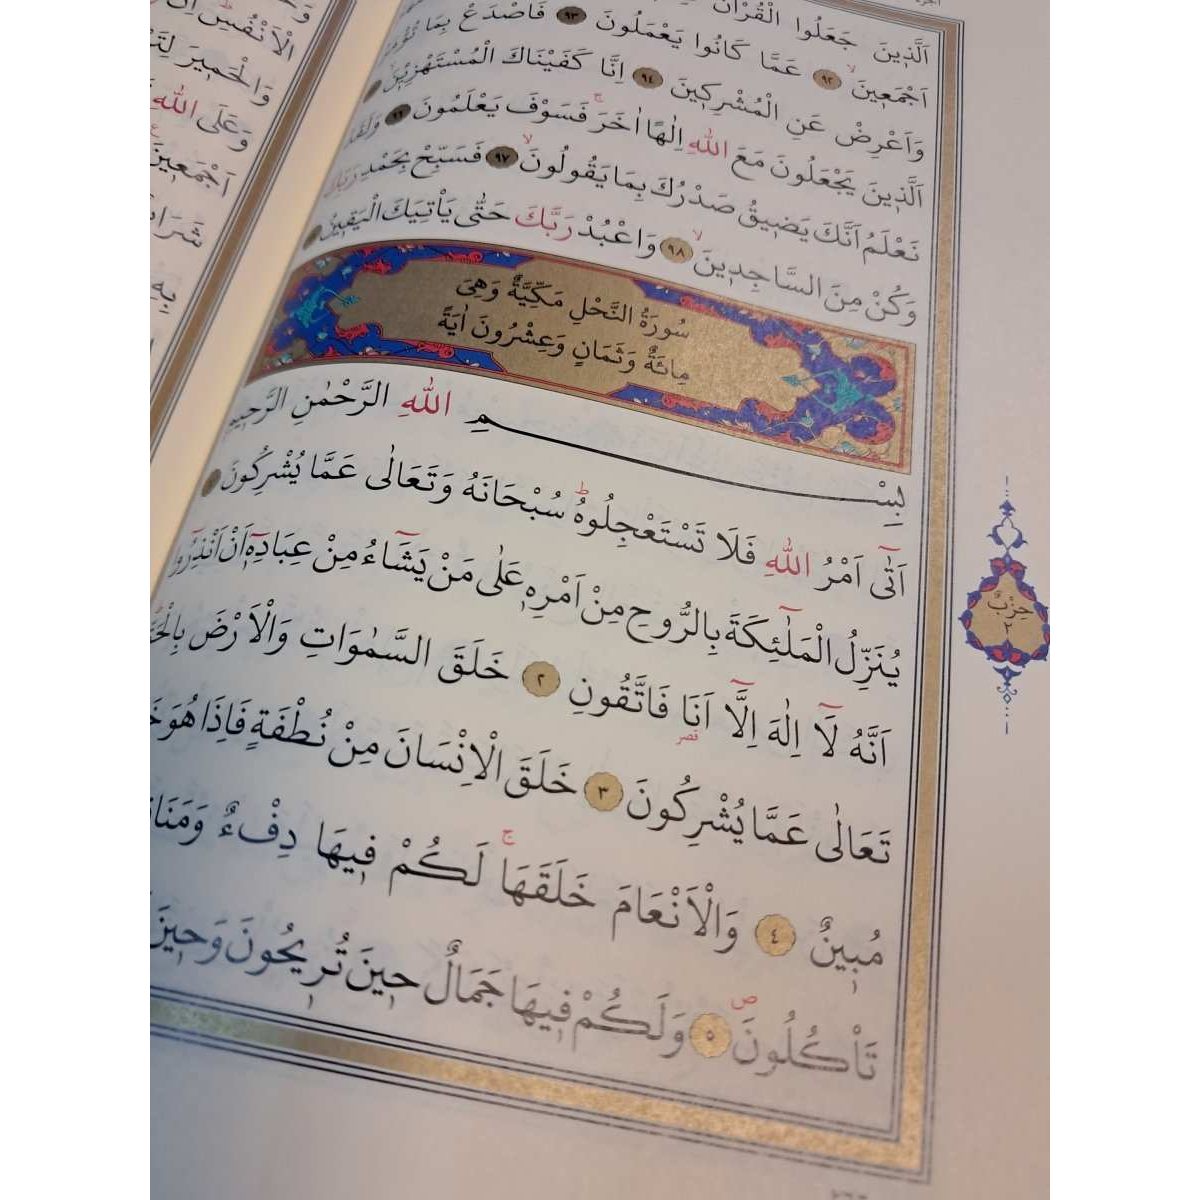 اَلَّذ۪ينَ جَعَلُوا الْقُرْاٰنَ
اَجْمَع۪ينَۙ ٩٢ عَمَّا كَانُوا يَعْمَلُونَ ٩٣ فَاصْدَعْ بِمَا تُؤْمَرُ
وَاَعْرِضْ عَنِ الْمُشْرِك۪ينَ ٩٤ اِنَّا كَفَيْنَاكَ الْمُسْتَهْزِء۪ينَۙ
اَلَّذ۪ينَ يَجْعَلُونَ مَعَ اللّٰهِ اِلٰهًا اٰخَرَۚ فَسَوْفَ يَعْلَمُونَ ٩٦ وَلَقَدْ
نَعْلَمُ اَنَّكَ يَض۪يقُ صَدْرُكَ بِمَا يَقُولُونَۙ ٩٧ فَسَبِّحْ بِحَمْدِ رَبِّكَ
وَكُنْ مِنَ السَّاجِد۪ينَۙ ٩٨ وَاعْبُدْ رَبَّكَ حَتّٰى يَأْتِيَكَ الْيَق۪ينُ
سُورَةُ النَّحْلِ مَكِّيَّةٌ وَهِىَ
مِائَةٌ وَثَمَانٍ وَعِشْرُونَ اٰيَةً
بِسْمِ اللّٰهِ الرَّحْمٰنِ الرَّح۪يمِ
اَتٰٓى اَمْرُ اللّٰهِ فَلَا تَسْتَعْجِلُوهُۜ سُبْحَانَهُ وَتَعَالٰى عَمَّا يُشْرِكُونَ
يُنَزِّلُ الْمَلٰٓئِكَةَ بِالرُّوحِ مِنْ اَمْرِه۪ عَلٰى مَنْ يَشَٓاءُ مِنْ عِبَادِه۪ٓ اَنْ اَنْذِرُٓوا
اَنَّهُ لَٓا اِلٰهَ اِلَّٓا اَنَا۬ فَاتَّقُونِ ٢ خَلَقَ السَّمٰوَاتِ وَالْاَرْضَ بِالْحَقِّۜ
تَعَالٰى عَمَّا يُشْرِكُونَ ٣ خَلَقَ الْاِنْسَانَ مِنْ نُطْفَةٍ فَاِذَا هُوَ
مُب۪ينٌ ٤ وَالْاَنْعَامَ خَلَقَهَاۚ لَكُمْ ف۪يهَا دِفْءٌ
تَأْكُلُونَۖ ٥ وَلَكُمْ ف۪يهَا جَمَالٌ ح۪ينَ تُر۪يحُونَ وَح۪ينَ
حِزْبٌ
٢
الْاَنْفُسِۜ
وَالْحَم۪يرَ
وَعَلَى اللّٰهِ
اَجْمَع۪ينَ
شَرَابٌ
بِهِ